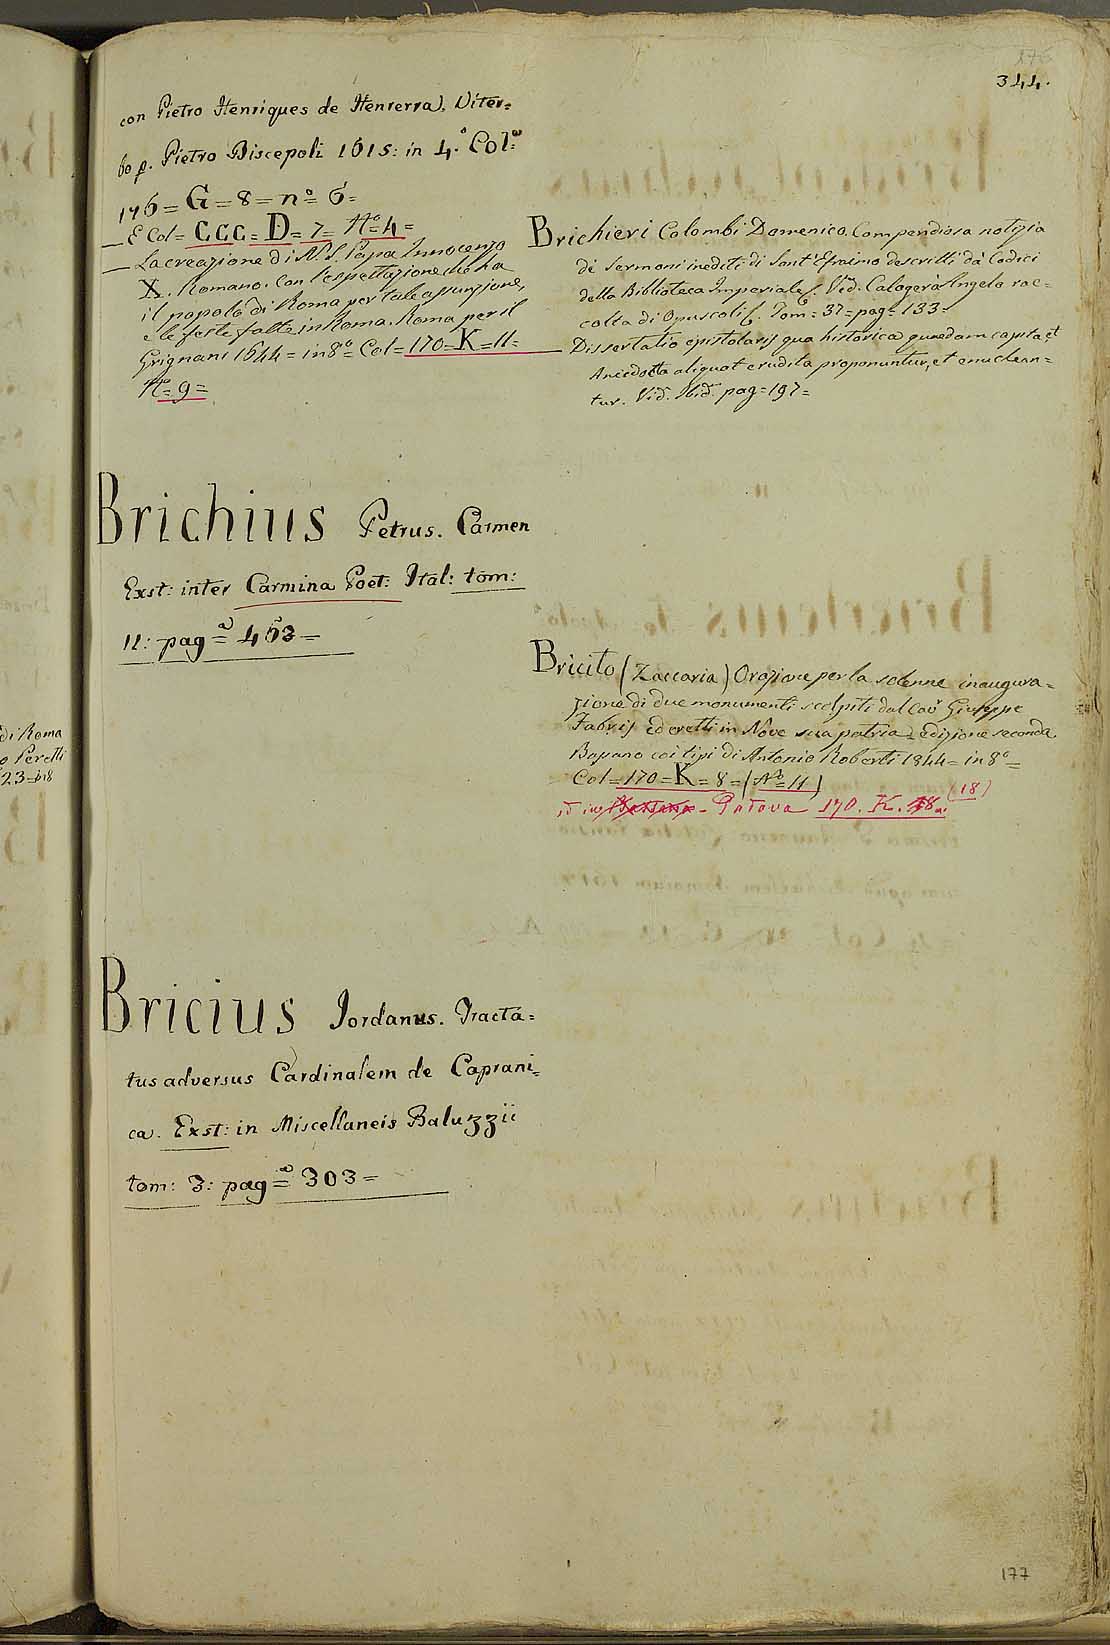 176
344.
con Pietro Henriques de Henrerra). Viter=
bo p. Pietro Biscepoli 1615: in 4.º Col:ª
176 = G = 8 = nº = 6 =
— E Col = CCC = D = 7 = Nº = 4 =
— La creazione di N. S. Papa Innocenzo
X. Romano. Con l'espettazione che ha
il popolo di Roma per tale assunzione,
e le feste fatte in Roma. Roma per il
Grignani 1644 = in 8º = Col = 170 = K = 11 =
Nº = 9 =
Brichius Petrus. Carmen
Exst: inter Carmina Poet: Ital: tom:
11: pagª = 463 =
Bricius Jordanus. Tracta=
tus adversus Cardinalem de Caprani=
ca. Exst: in Miscellaneis Baluzzii
tom: 3: pagª = 303 =
Brichieri Colombi Domenico. Compendiosa notizia
de Sermoni inediti di Sant'Efraimo descritti da Codici
della Biblioteca Imperiale. Vid. Calogerà Angelo rac=
colta di Opuscoli. Tom = 37 = pag = 133 =
Dissertatio epistolaris qua historica quaedam capita, et
Anecdota aliquot erudita proponuntur, et enuclean=
tur. Vid. Ibid. pag = 197 =
Bricito (Zaccaria) Orazione per la solenne inaugura=
zione di due monumenti scolpiti dal Cavr Giuseppe
Fabris ed eretti in Nove sua patria. Edizione seconda
Bassano coi tipi di Antonio Roberti 1844 = in 8º =
Col = 170 = K = 8 = (Nº = 11)
Padova 170. K. 18. (18)
di Roma
o Peretti
23 = b 18
177